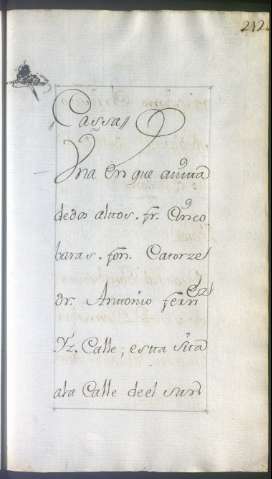 212
Cassas
Vna en que auita
de dos altos. fr. Cinco
baras. fon. Catorze
dr. Antonio fern
Yz. Calle, esta sita
ala Calle deel sur